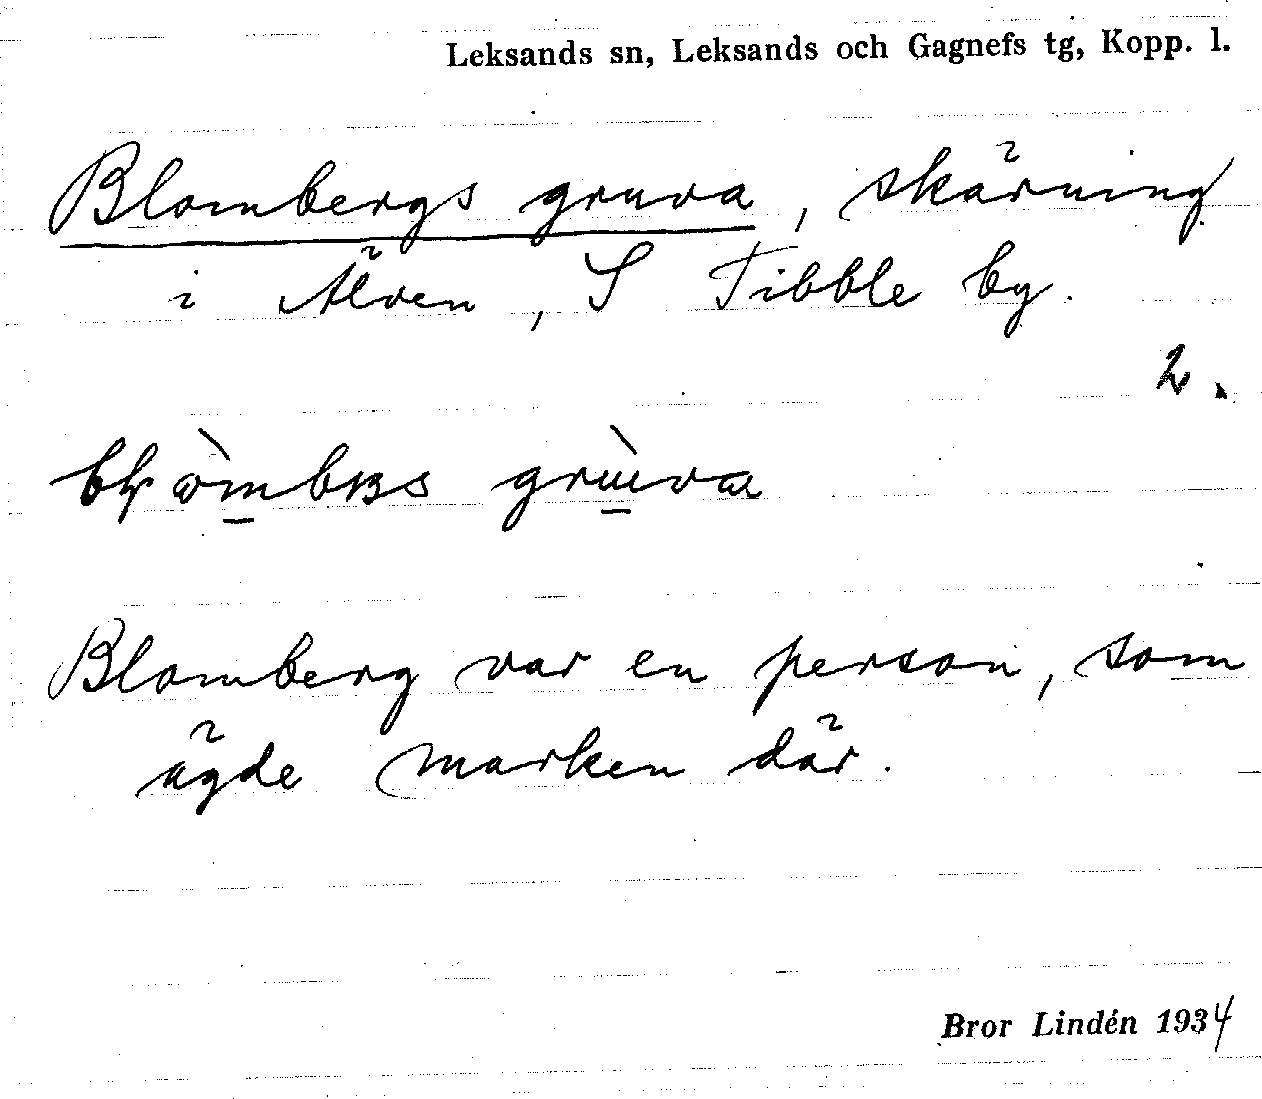 Leksands sn, Leksands och Gagnefs tg, Kopp. l.
Blombergs gruva, skärning
i Älven, S Tibble by.
2.
grù̲va
Blomberg var en person, som
ägde marken där.
Bror Lindén 1934